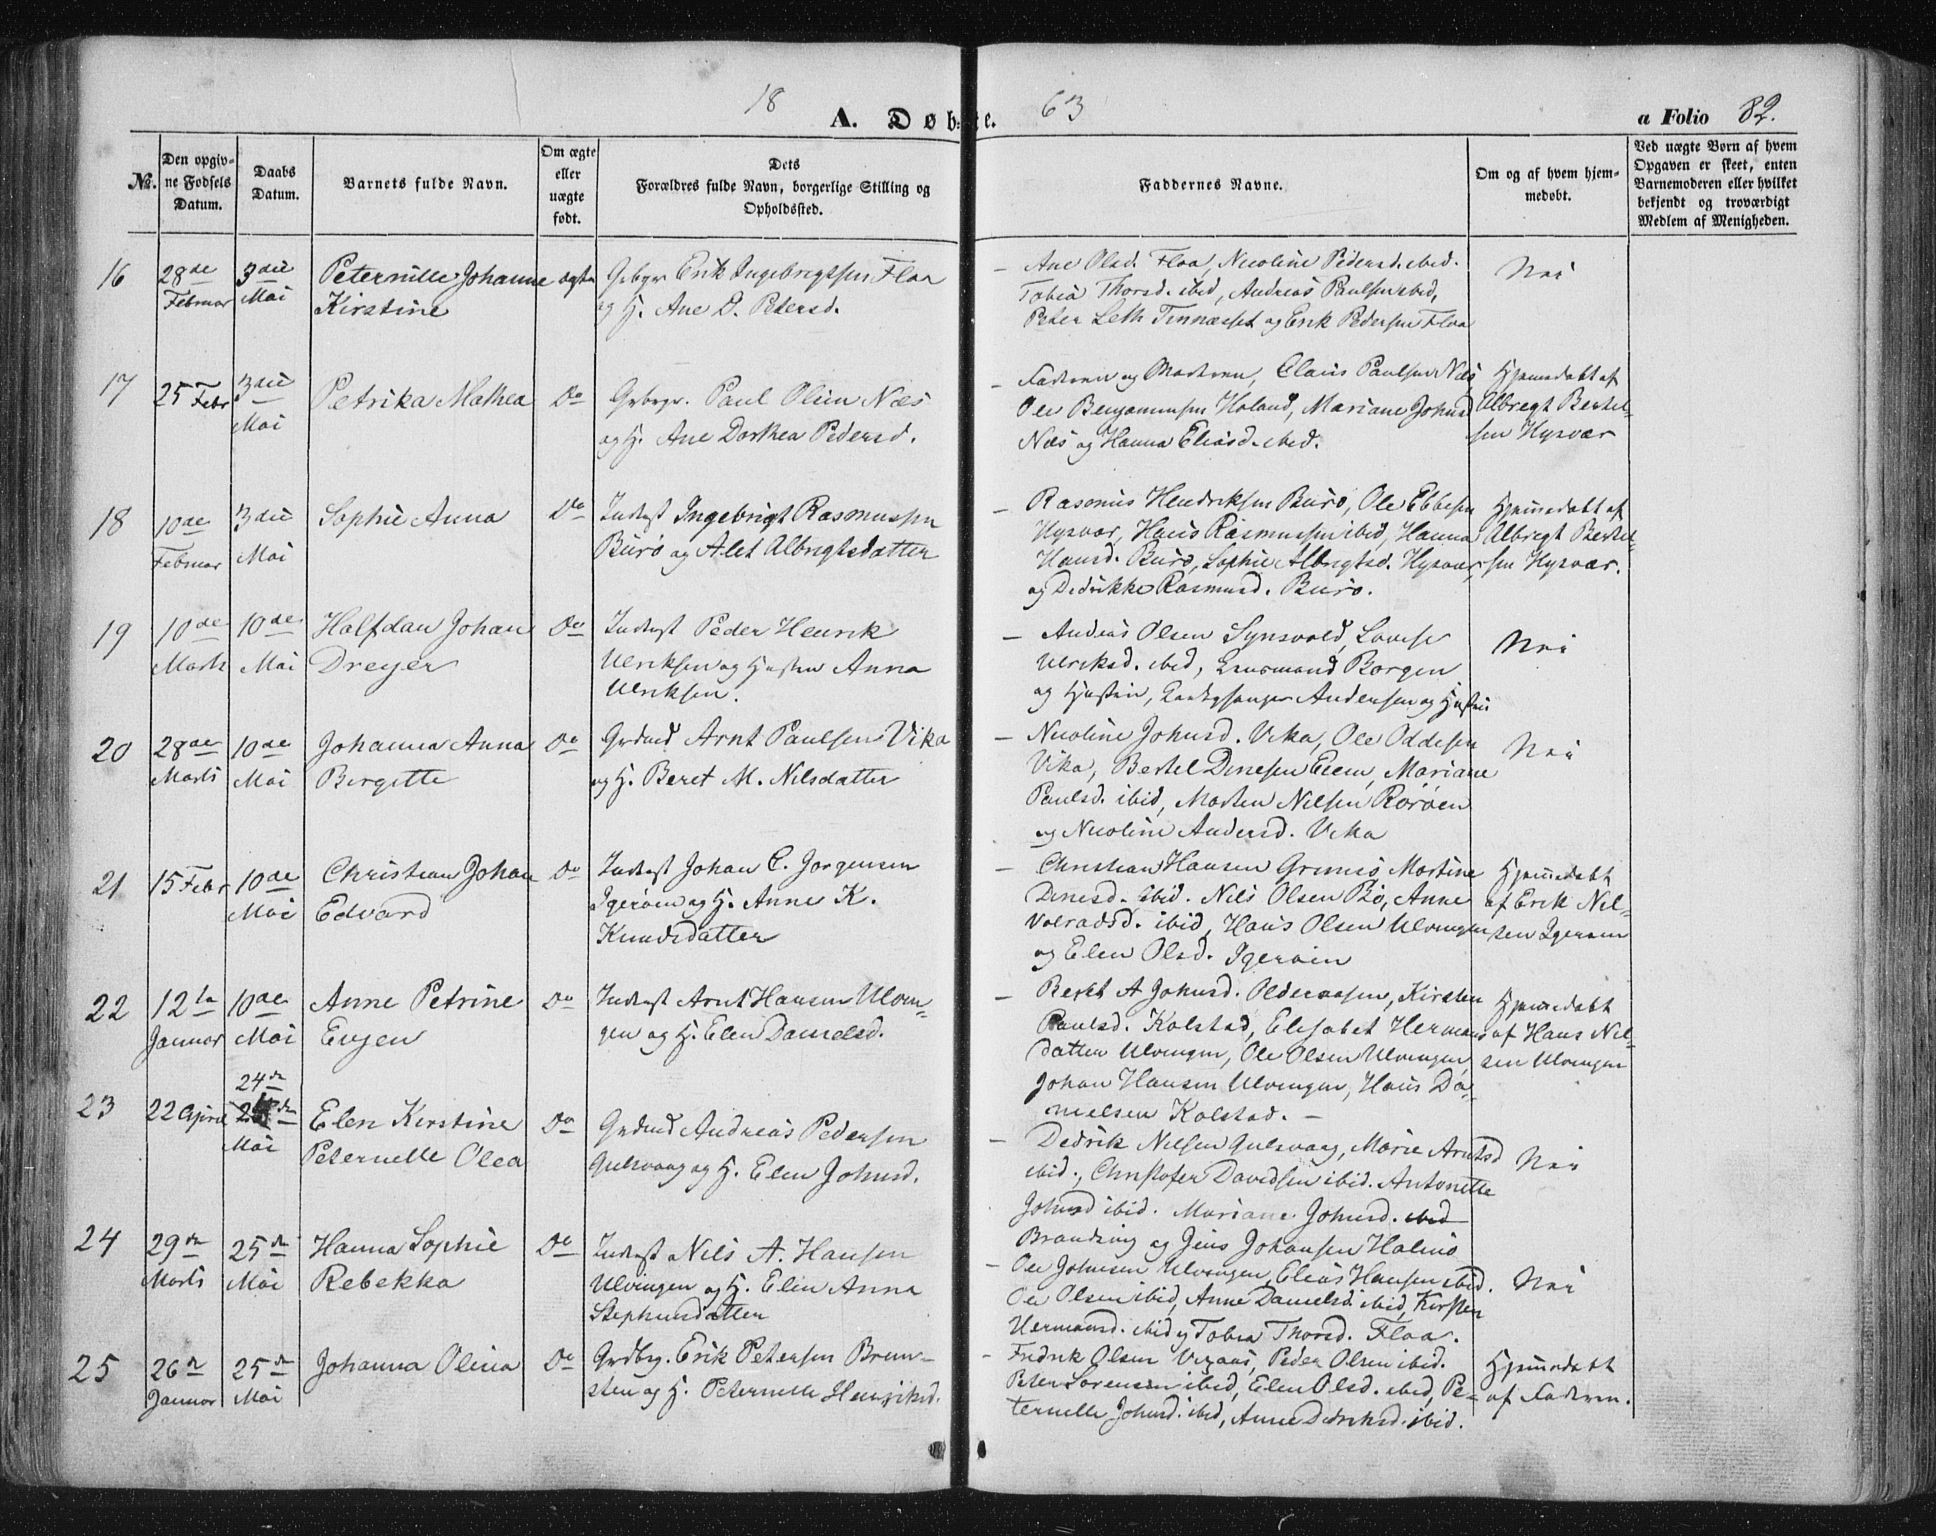 18 63
A. Døbte. a Folio 82.
№.
Den opgiv-
ne Fødsels
Datum.
Daabs
Datum.
Barnets fulde Navn.
Om ægte
eller
uægte
født.
Dets
Forældres fulde Navn, borgerlige Stilling og
Opholdssted.
Faddernes Navne.
Om og af hvem hjem-
medøbt.
Ved uægte Børn af hvem
Opgaven er skeet, enten
Barnemoderen eller hvilket
bekjendt og troværdigt
Medlem af Menigheden.
16 28de Februar 3die Mai
Peternille Johanne
Kirstine
ægte
Grbgr. Erik Ingebrigtsen Floa
og H. Ane D. Petersd.
– Ane Olsd. Floa, Nicoline Pedersd. ibid.
Tobia Thorsd. ibid, Andreas Paulsen ibid,
Peter Leth Tennæset og Erik Pedersen Floa
Nei
17 25 Febr 3die Mai
Petrika Mathea
Do
Grbgr. Paul Olsen Næs
og H. Ane Dorthea Pedersd.
– Faderen og Moderen, Claus Paulsen Næs
Ole Benjaminsen Holand, Mariane Johnsd
Næs og Hanna Eliasd. ibid.
Hjemmedøbt af
Albregt Bertel-
sen Hysvær
18 10de Februar 3die Mai
Sophie Anna
Do
Inderst Ingebrigt Rasmussen
Burø og Alet Albrigtsdatter
– Rasmus Hendriksen Burø, Ole Ebbesen
Hysvær, Hans Rasmussen ibid, Hanna
Hansd. Burø, Sophie Albrigtsd. Hysvær,
og Dedrikke Rasmusd. Burø.
Hjemmedøbt af
Albregt Bertel-
sen Hysvær.
19 10de Marts 10de Mai
Halfdan Johan
Dreyer
Do
Inderst Peder Henrik
Ulriksen og Hustru Anna
Ulriksen.
– Andreas Olsen Synsvold, Lovise
Ulriksd. ibid, Lensmand Borgen
og Hustru, Kirkesanger Andersen og Hustru
Nei
20 28de Marts 10de Mai
Johanna Anna
Birgitte
Do
Grdmd Arnt Paulsen Vika
og H. Beret M. Nilsdatter
– Nicoline Johnsd. Vika, Ole Oddesen
Vika, Bertel Dinesen Eiem, Mariane
Paulsd. ibid, Morten Nilsen Rørøen
og Nicoline Andersd. Vika
Nei
21 15 Febr 10de Mai
Christian Johan
Edvard
Do
Inderst Johan C. Jørgensen
Igerøen og H. Anne K.
Knudsdatter
– Christian Hansen Grimsø, Martine
Dinesd. ibid. Nils Olsen Bø, Anne
Volradsd. ibid, Hans Olsen Ulvingen
og Elen Olsd. Igerøen
Hjemmedøbt
af Erik Nil-
sen Igerøen
22 12te Januar 10de Mai
Anne Petrine
Eujen
Do
Inderst Arnt Hansen Ulvin-
gen og H. Elen Danielsd.
– Beret A Johnsd. Olderaasen, Kirsten
Paulsd. Kolstad, Elisabet Hermans
datter Ulvingen, Ole Olsen Ulvingen,
Johan Hansen Ulvingen, Hans Da-
nielsen Kolstad. –
Hjemmedøbt
af Hans Nil-
sen Ulvingen
23 22 April 24de Mai
Elen Kirstine
Peternelle Olea
Do
Grdmd Andreas Pedersen
Gulsvaag og H. Elen Johnsd.
– Dedrik Nilsen Gulsvaag, Marie Arntsd
ibid., Christofer Davidsen ibid. Antonette
Johnsd ibid. Mariane Johnsd. ibid
Brandsing og Jens Johansen Halmø
Nei
24 29de Marts 25de Mai
Hanna Sophie
Rebekka
Do
Inderst Nils A. Hansen
Ulvingen og H. Elen Anna
Stephensdatter
– Ole Johnsen Ulvingen, Elias Hansen ibid.
Ole Olsen ibid, Anne Danielsd. ibid, Kirsten
Hermansd. ibid og Tobia Thorsd. Floa.
Nei
25 26de Januar 25de Mai
Johanna Olina
Do
Grdbg. Erik Petersen Brem-
sten og H. Peternelle Henriksd.
– Fredrik Olsen Vegaas, Peder Olsen ibid.
Peter Sørensen ibid, Elen Olsd. ibid, Pe-
ternelle Johnsd. ibid, Anne Dedriksd. ibid.
Hjemmedøbt
af Faderen.